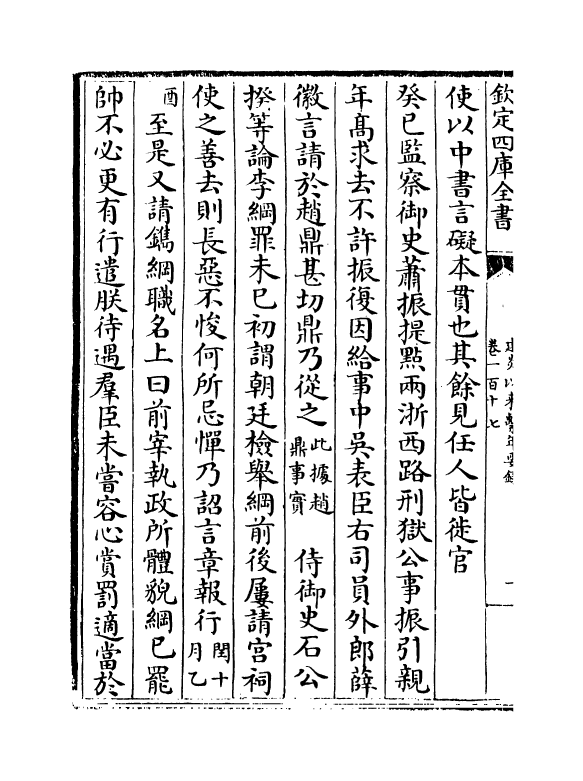 欽定四庫全書
建炎以來繫年要錄
卷一百十七
一
使以中書言礙本貫也其餘見任人皆徙官
癸巳監察御史蕭振提點兩浙西路刑獄公事振引親
年高求去不許振復因給事中吳表臣右司員外郎薛
徽言請於趙鼎甚切鼎乃從之此據趙鼎事實 侍御史石公
揆等論李綱罪未已初謂朝廷檢舉綱前後屢請宮祠
使之善去則長惡不悛何所忌憚乃詔言章報行閏十月乙
酉至是又請鐫綱職名上曰前宰執政所體貌綱已罷
帥不必更有行遣朕待遇羣臣未嘗容心賞罰適當於